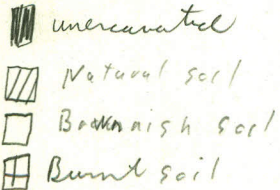 unexcavated
Natural soil
Brownish soil
Burnt soil